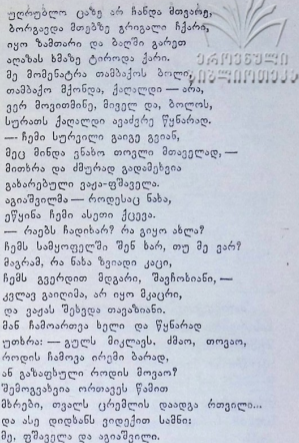 უღრუბლო ცაზე არ ჩანდა მთვარე,
ბორგავდა მთებზე გრიგალი ჩქარი,
იყო ზამთარი და ბაღში გარეთ
ალაზას ხმაზე ტიროდა ქარი.
მე მომენატრა თამბაქოს ბოლი,
თამბაქო მქონდა, ქაღალდი — არა,
ვერ მოვითმინე, მიველ და, ბოლოს,
სურათს ქაღალდი ავაძვრე წყნარად.
— ჩემი სურვილი გაიგე გვიან,
მეც მინდა ვნახო თოვლი მთაველად, —
მითხრა და ძმურად გადამეხვია
გახარებული ვაჟა-ფშაველა.
აგიაშვილმა — როდესაც ნახა,
ეწყინა ჩემი ასეთი ქცევა.
— რაებს ჩადიხარ? რა გიყო ახლა?
ჩემს სამყოფელში შენ ხარ, თუ მე ვარ?
მაგრამ, რა ნახა ზვიადი კაცი,
ჩემს გვერდით მდგარი, შავჩოხიანი, —
კვლავ გაიღიმა, არ იყო მკაცრი,
და ვაჟას შეხედა თავაზიანი.
მან ჩამოართვა ხელი და წყნარად
უთხრა: — გულს მიკლავს, ძმაო, თოვაო,
როდის ჩამოვა ირემი ბარად,
ან გაზაფხული როდის მოვაო?
შემოგვახვია ორთავეს წამით
მხრები, თვალს ცრემლის დაადგა რთვილი...
და ასე დიდხანს ვიდექით სამნი:
მე, ფშაველა და აგიაშვილი.
ეროვნული
ბიბლიოთეკა